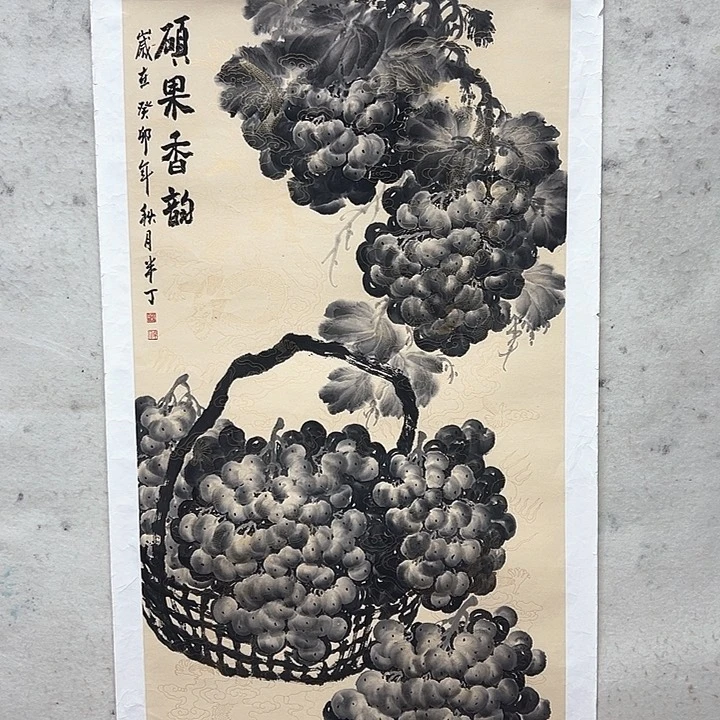 碩果香韵
歲在癸卯年秋月半丁